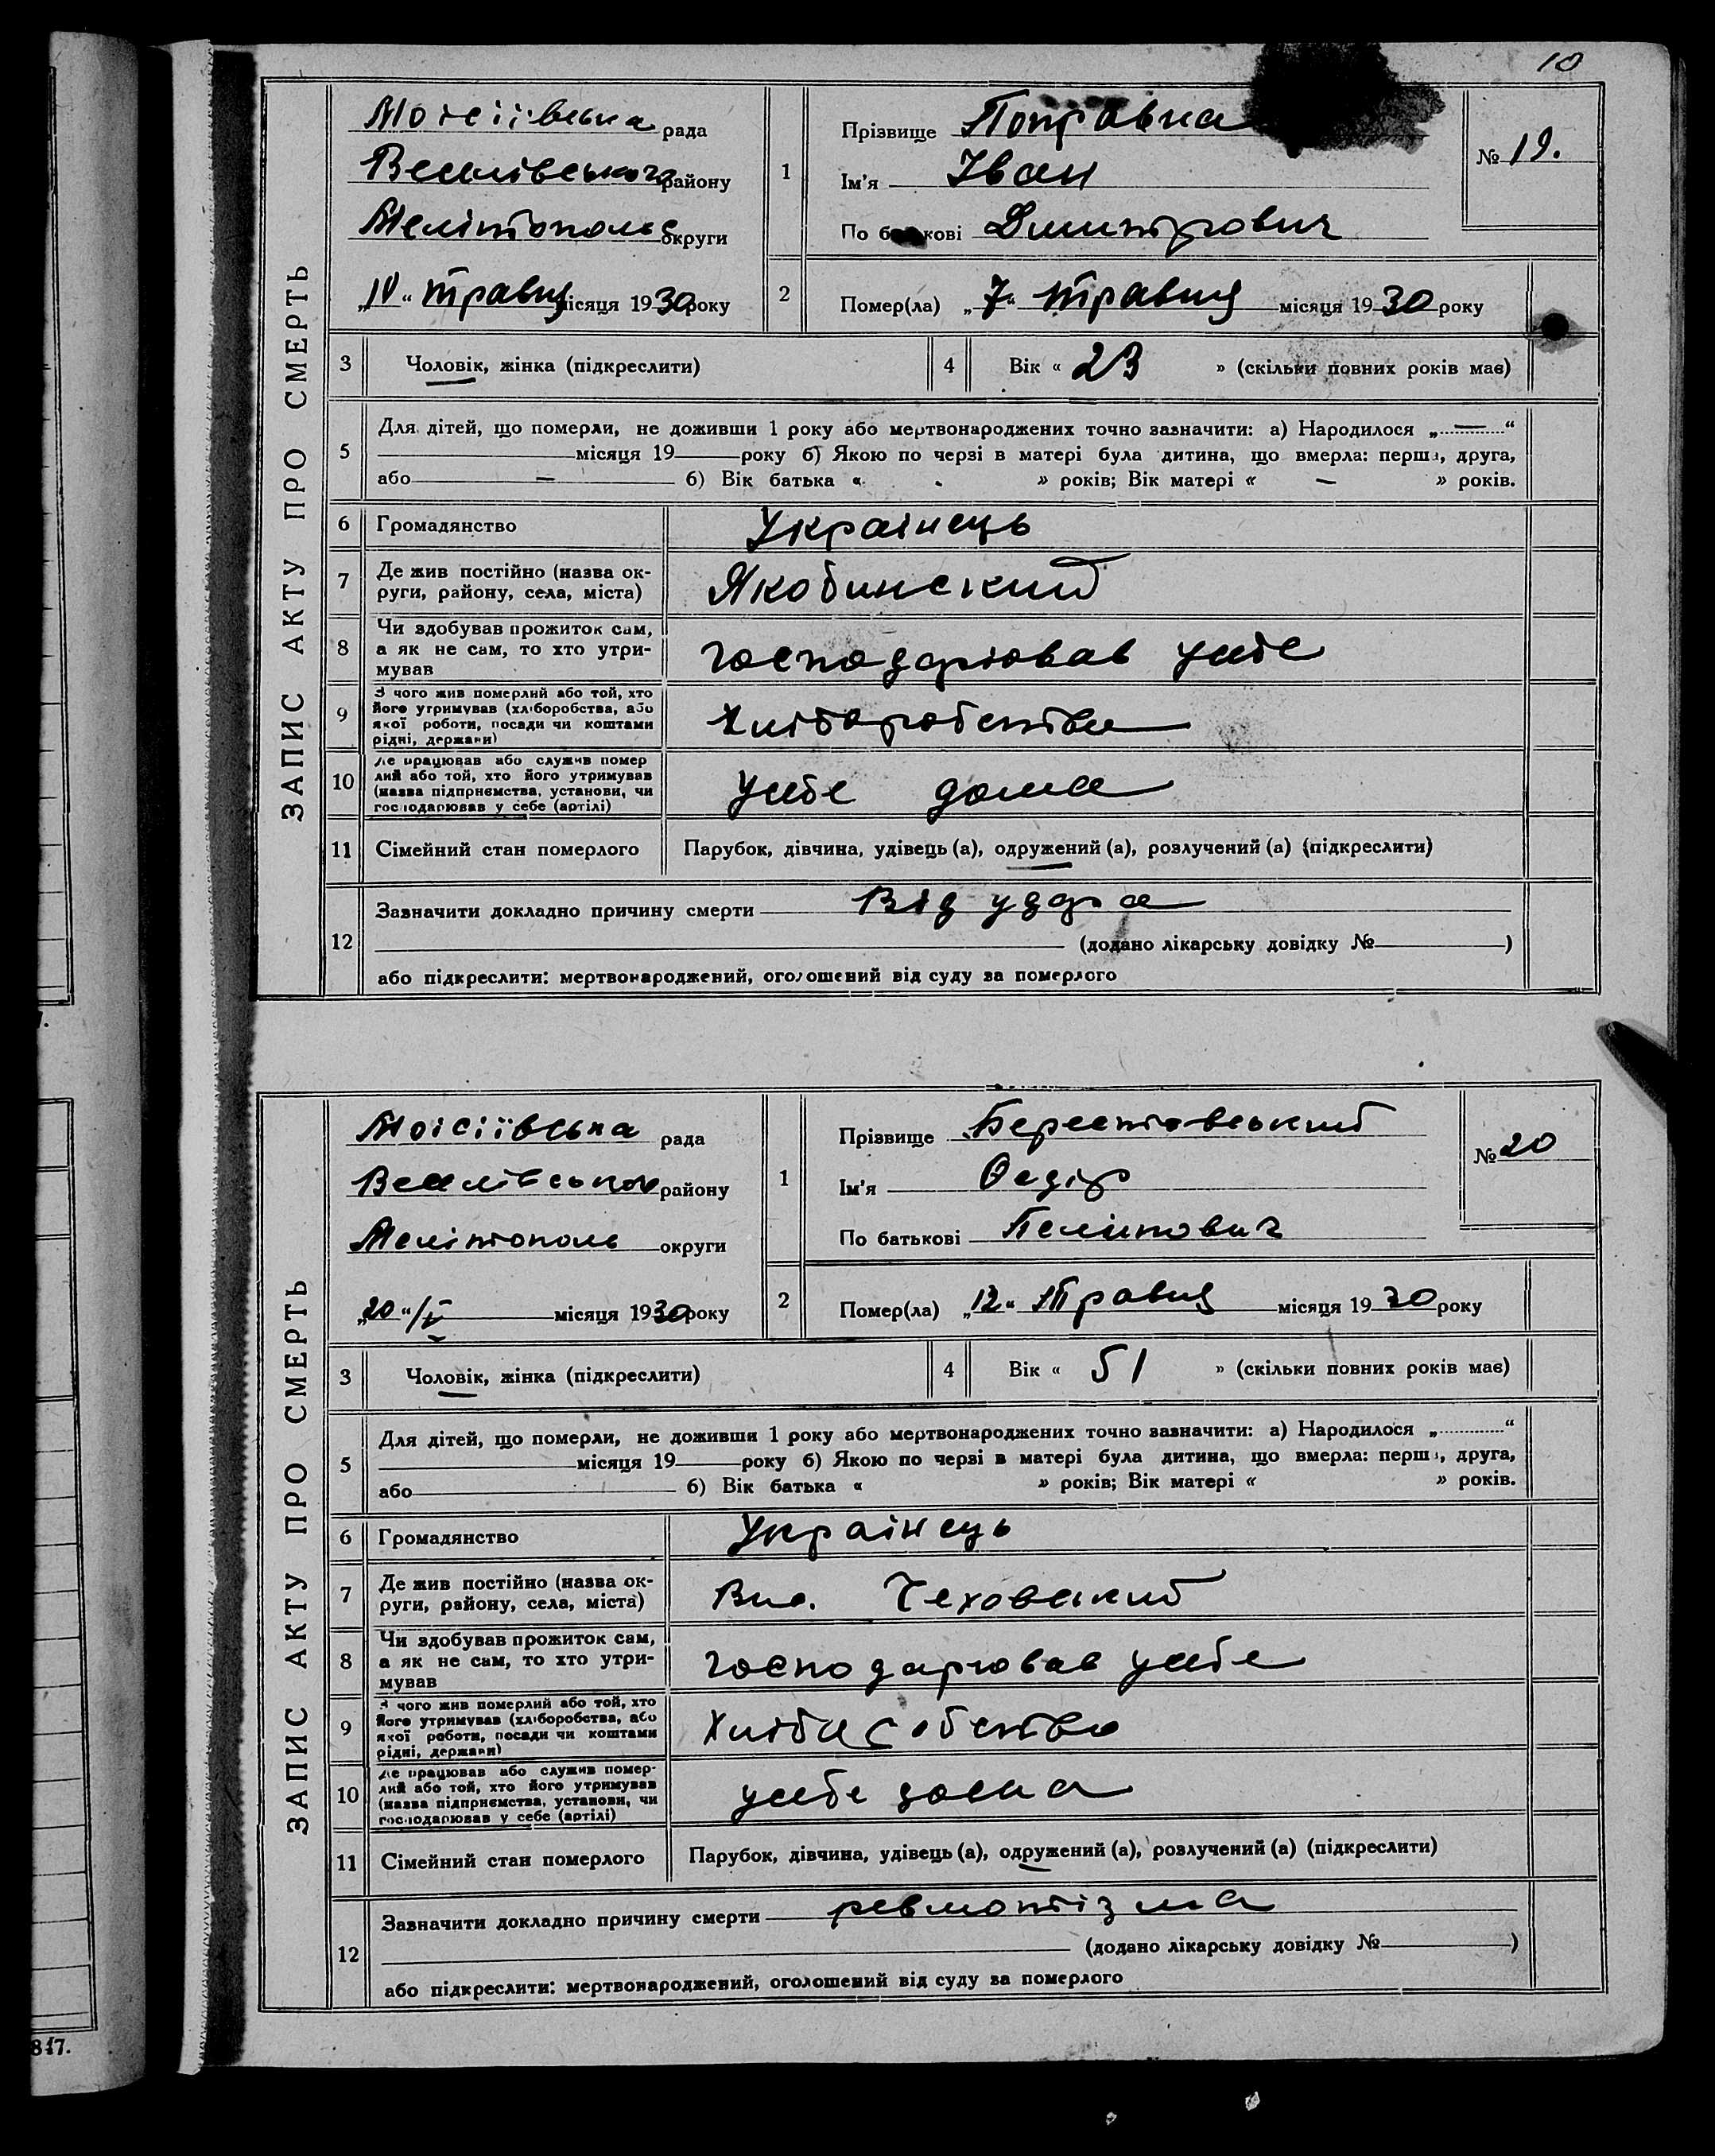 10
ЗАПИС АКТУ ПРО СМЕРТЬ
Моісіївська рада
Веселівського району
Мелітополь округи
„10“ травня місяця 1930 року
1
Прізвище Поправка
Ім'я Іван
По батькові Дмитрович
№ 19.
2
Помер(ла) „7“ травня місяця 1930 року
3
Чоловік, жінка (підкреслити)
4
Вік « 23 » (скільки повних років має)
5
Для дітей, що померли, не доживши 1 року або мертвонароджених точно зазначити: а) Народилося „ — “
місяця 19 року б) Якою по черзі в матері була дитина, що вмерла: перша, друга,
або — б) Вік батька « » років; Вік матері « — » років.
6
Громадянство Українець
7
Де жив постійно (назва ок-
руги, району, села, міста)
Якобинский
8
Чи здобував прожиток сам,
а як не сам, то хто утри-
мував
господарював усебе
9
З чого жив померлий або той, хто
його утримував (хліборобства, або
якої роботи, посади чи коштами
рідні, держави)
Хліборобства
10
Де працював або служив помер
лий або той, хто його утримував
(назва підприємства, установи, чи
господарював у себе (артілі)
усебе дома
11
Сімейний стан померлого Парубок, дівчина, удівець (а), одружений (а), розлучений (а) (підкреслити)
12
Зазначити докладно причину смерти Від удара
(додано лікарську довідку № )
або підкреслити: мертвонароджений, оголошений від суду за померлого
ЗАПИС АКТУ ПРО СМЕРТЬ
Моісіївська рада
Веселівського району
Мелітополь округи
„20“/V місяця 1930 року
1
Прізвище Берестовський
Ім'я Федір
По батькові Пелипович
№ 20
2
Помер(ла) „12“ Травня місяця 1930 року
3
Чоловік, жінка (підкреслити)
4
Вік « 51 » (скільки повних років має)
5
Для дітей, що померли, не доживши 1 року або мертвонароджених точно зазначити: а) Народилося „ “
місяця 19 року б) Якою по черзі в матері була дитина, що вмерла: перша, друга,
або б) Вік батька « » років; Вік матері « » років.
6
Громадянство Українець
7
Де жив постійно (назва ок-
руги, району, села, міста)
Вис. Чеховский
8
Чи здобував прожиток сам,
а як не сам, то хто утри-
мував
господарював усебе
9
З чого жив померлий або той, хто
його утримував (хліборобства, або
якої роботи, посади чи коштами
рідні, держави)
10
Де працював або служив помер-
лий або той, хто його утримував
(назва підприємства, установи, чи
господарював у себе (артілі)
усебе дома
11
Сімейний стан померлого Парубок, дівчина, удівець (а), одружений (а), розлучений (а) (підкреслити)
12
Зазначити докладно причину смерти ревмотізма
(додано лікарську довідку № )
або підкреслити: мертвонароджений, оголошений від суду за померлого
847.